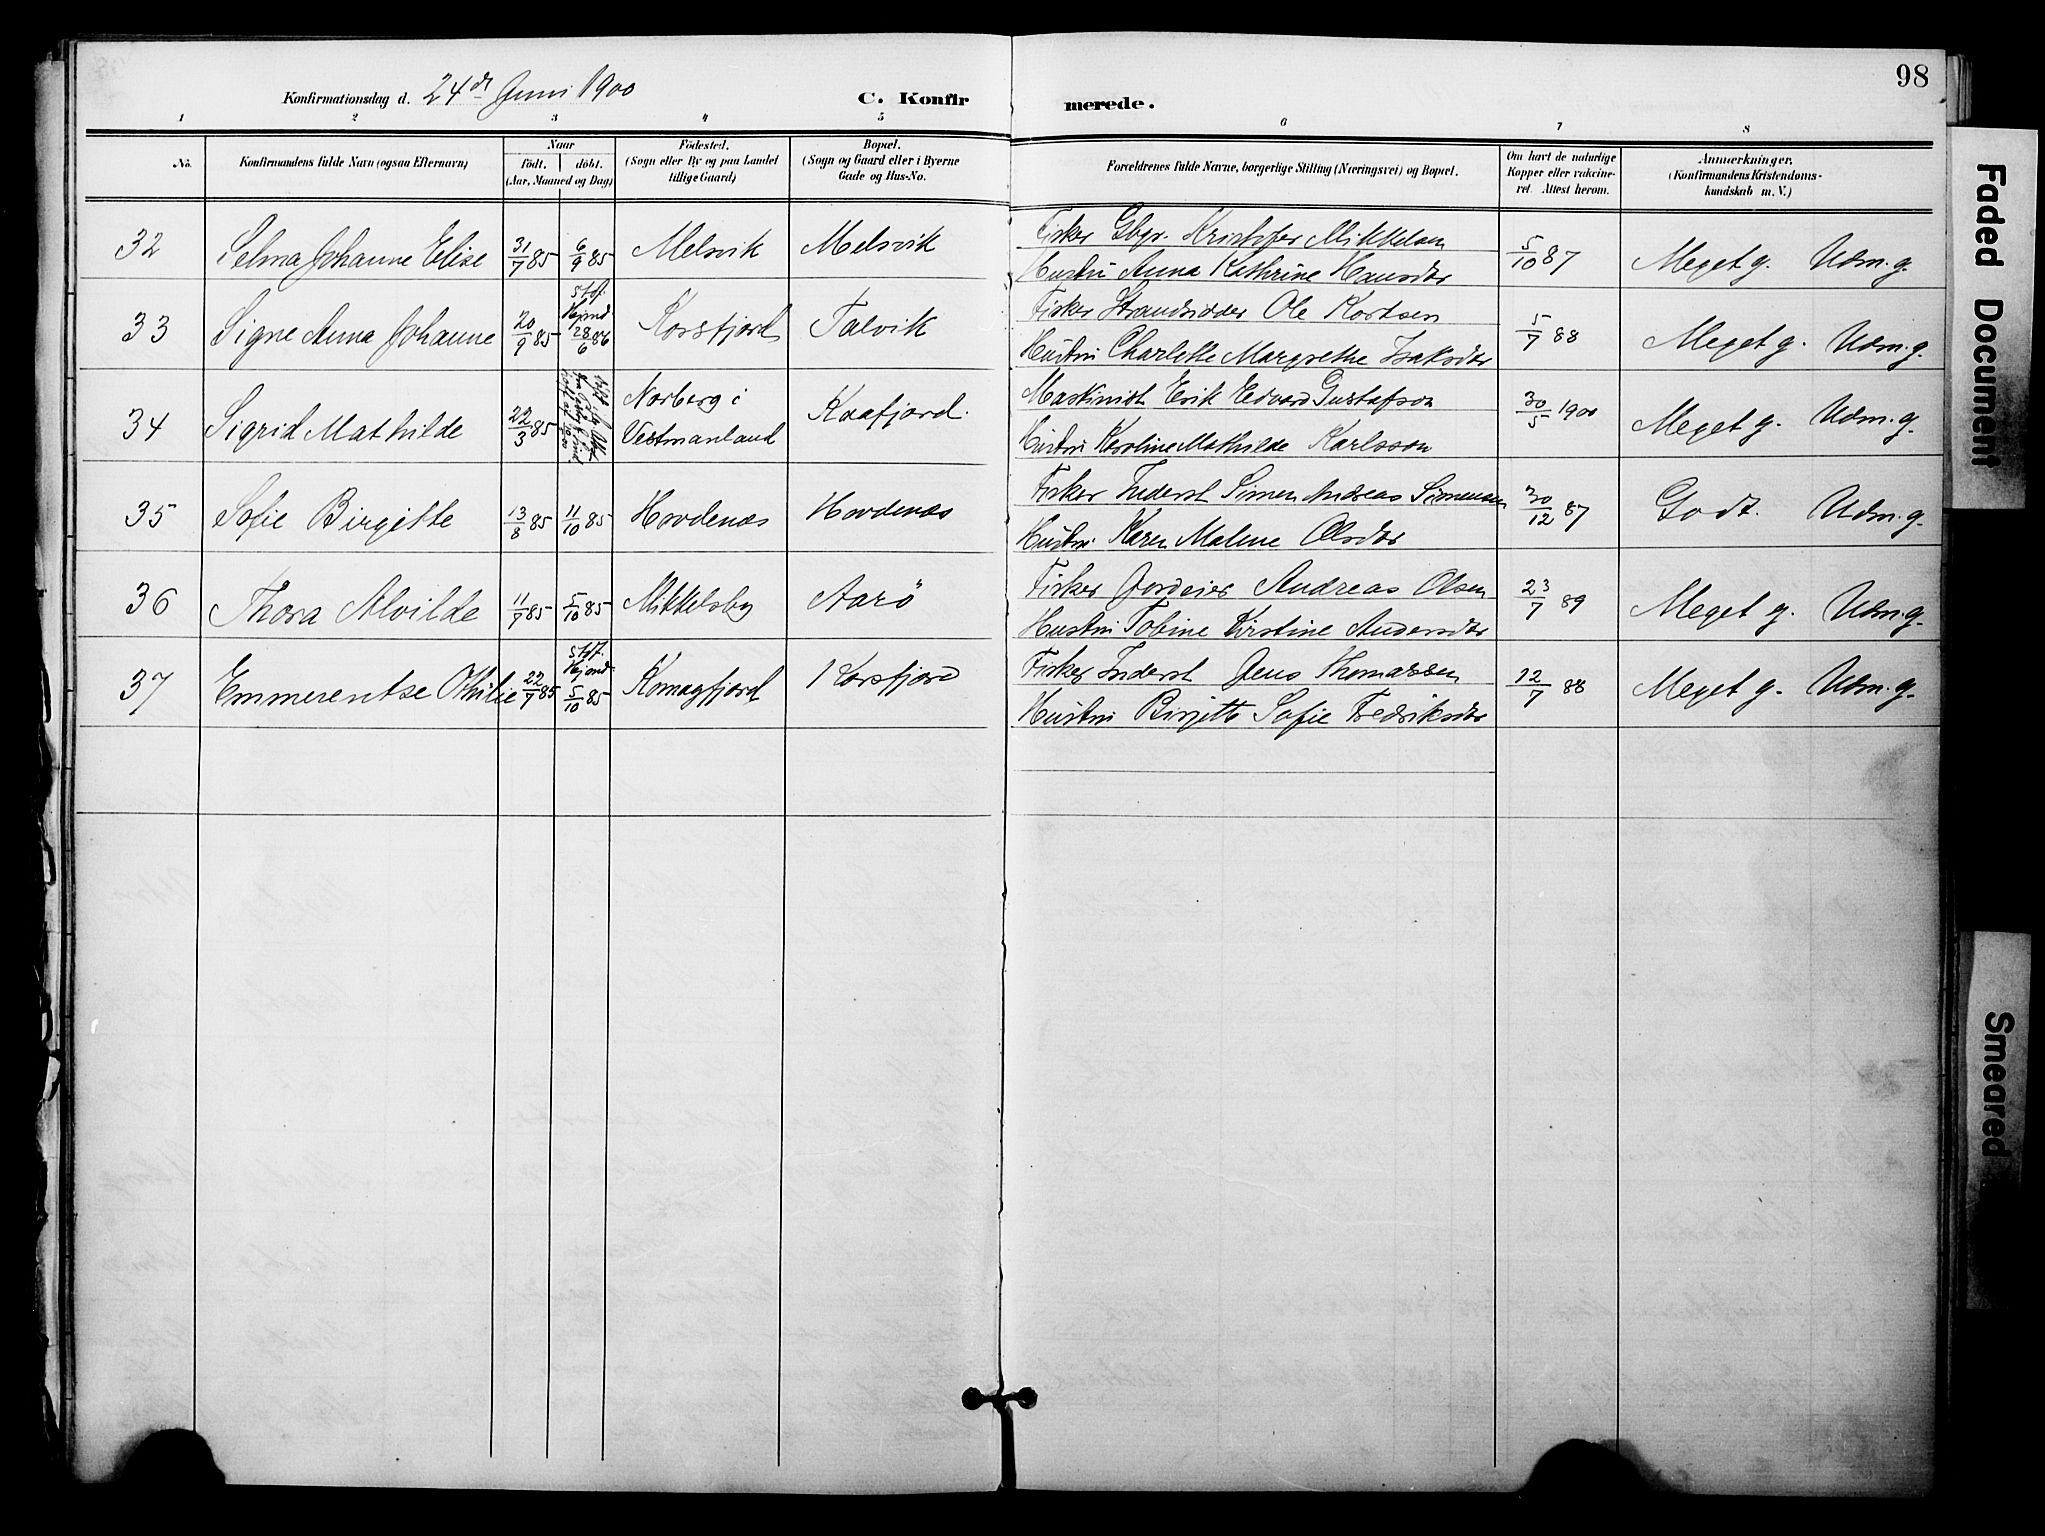 98
Konfirmationsdag d. 24de Juni 1900
C. Konfir merede.
1 2 3 4 5 6 7 8
No.
Konfirmandens fulde Navn (ogsaa Efternavn)
Naar
födt. döbt.
(Aar, Maaned og Dag)
Födested.
(Sogn eller By og paa Landet
tillige Gaard)
Bopæl.
(Sogn og Gaard eller i Byerne
Gade og Hus-No.
Forældrenes fulde Navne, borgerlige Stilling (Næringsvei) og Bopæl.
Om havt de naturlige
Kopper eller vakcine-
ret. Attest herom.
Anmærkninger,
(Konfirmandens Kristendoms-
kundskab m. V.)
32 Selma Johanne Elise 31/7 85 6/9 85 Melsvik Melsvik Fisker Gbgr. Kristofer Mikkelsen
Hustru Anna Kathrine Hansdtr 5/10 87 Meget g. Udm. g.
33 Signe Anna Johanne 20/9 85 stdf. Hjemd. 28/6 86 Korsfjord Talvik Fisker Strandsidder Ole Kordsen
Hustru Charlotte Margrethe Isaksdtr 5/7 88 Meget g. Udm. g.
34 Sigrid Mathilde 22/3 85 Norberg i
Vestmanland Kaafjord. Maskinist Erik Edvard Gustafson
Hustru Karoline Mathilde Karlsson 30/5 1900 Meget g. Udm. g.
35 Sofie Birgitte 13/8 85 11/10 85 Hovdenæs Hovdenæs Fisker Inderst Simon Andreas Simonsen
Hustru Karen Malene Olsdtr 30/12 87 Godt. Udm. g.
36 Thora Alvilde 11/7 85 5/10 85 Mikkelsby Aarö Fisker Jordeier Andreas Olsen
Hustru Tobine Kirstine Andersdtr 23/7 89 Meget g. Udm. g.
37 Emmerentse Othilie 22/7 85 stdf. Hjemd. 5/10 85 Komagfjord Korsfjord Fisker Inderst Jens Thomassen
Hustru Birgitte Sofie Fredriksdtr 12/7 88 Meget g. Udm. g.
Faded Document
Smeared